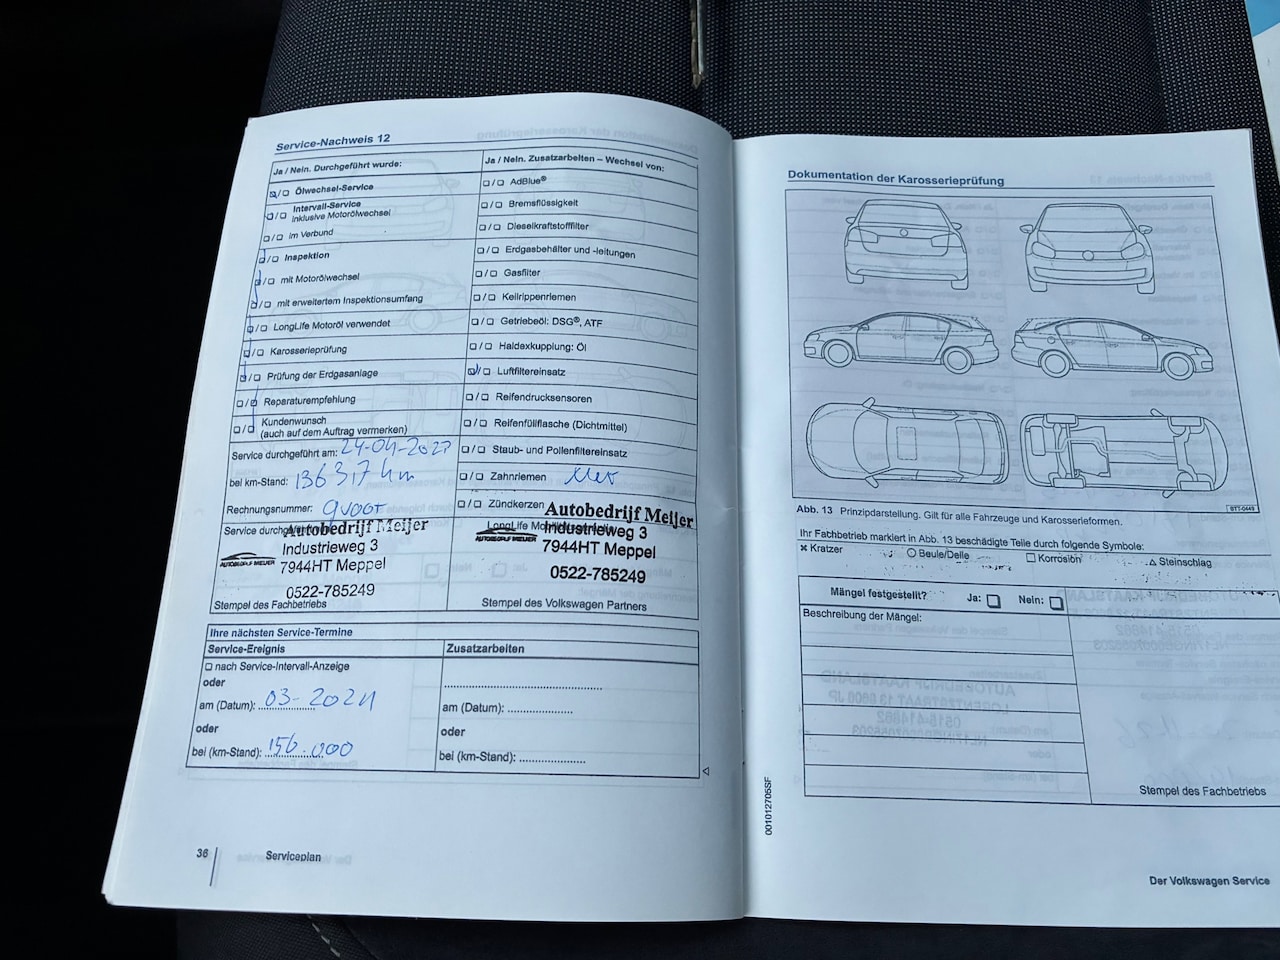 Service-Nachweis 12
Ja / Nein. Durchgeführt wurde:
Ölwechsel-Service
Intervall-Service
inklusive Motorölwechsel
im Verbund
Inspektion
mit Motorölwechsel
mit erweitertem Inspektionsumfang
LongLife Motoröl verwendet
Karosserieprüfung
Prüfung der Erdgasanlage
Reparaturempfehlung
Kundenwunsch
(auch auf dem Auftrag vermerken)
Service durchgeführt am:
bei km-Stand:
Rechnungsnummer:
Service
Autobedrijf Meijer
Industrieweg 3
AUTOBEDRIJF MEIJER
7944HT Meppel
0522-785249
Stempel des Fachbetriebs
Ja / Nein. Zusatzarbeiten – Wechsel von:
AdBlue®
Bremsflüssigkeit
Dieselkraftstofffilter
Erdgasbehälter und -leitungen
Gasfilter
Keilrippenriemen
Getriebeöl: DSG®, ATF
Haldexkupplung: Öl
Luftfiltereinsatz
Reifendrucksensoren
Reifenfüllflasche (Dichtmittel)
Staub- und Pollenfiltereinsatz
Zahnriemen
Zündkerzen
LongLife
Autobedrijf Meijer
Industrieweg 3
AUTOBEDRIJF MEIJER
7944HT Meppel
0522-785249
Stempel des Volkswagen Partners
Ihre nächsten Service-Termine
Service-Ereignis
nach Service-Intervall-Anzeige
oder
am (Datum): 03-2024
oder
bei (km-Stand): 156.000
Zusatzarbeiten
am (Datum):
oder
bei (km-Stand):
36
Serviceplan
Dokumentation der Karosserieprüfung
BTT-0449
Abb. 13 Prinzipdarstellung. Gilt für alle Fahrzeuge und Karosserieformen.
Ihr Fachbetrieb markiert in Abb. 13 beschädigte Teile durch folgende Symbole:
Kratzer Beule/Delle Korrosion Steinschlag
Mängel festgestellt? Ja: Nein:
Beschreibung der Mängel:
Stempel des Fachbetriebs
001012705SF
Der Volkswagen Service